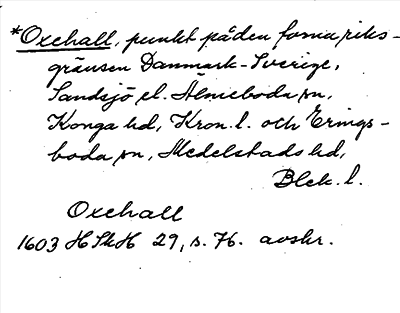 *Oxehall, punkt på den forna riks-
gränsen Danmark-Sverige,
Sandsjö el. Älmeboda sn,
Konga hd, Kron. l. och Erings-
boda sn, Medelstads hd,
Blek. l.
Oxehall
1603 HSkH 29, s. 76. avskr.